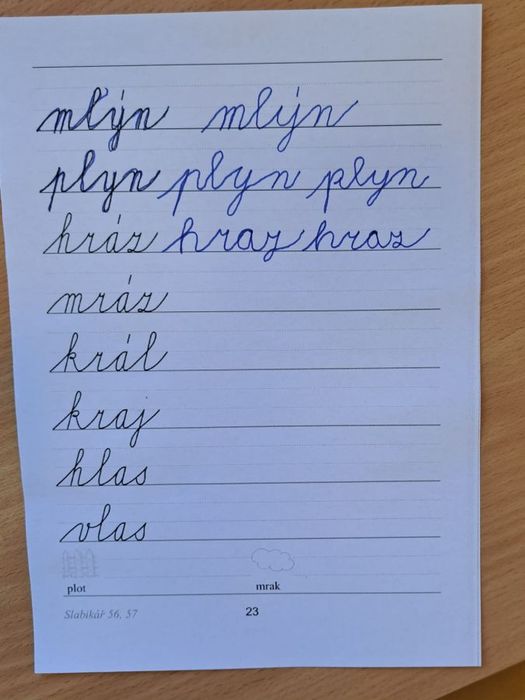 mlýn mlýn
plyn plyn plyn
hráz hraz hraz
mráz
král
kraj
hlas
vlas
plot mrak
Slabikář 56, 57 23